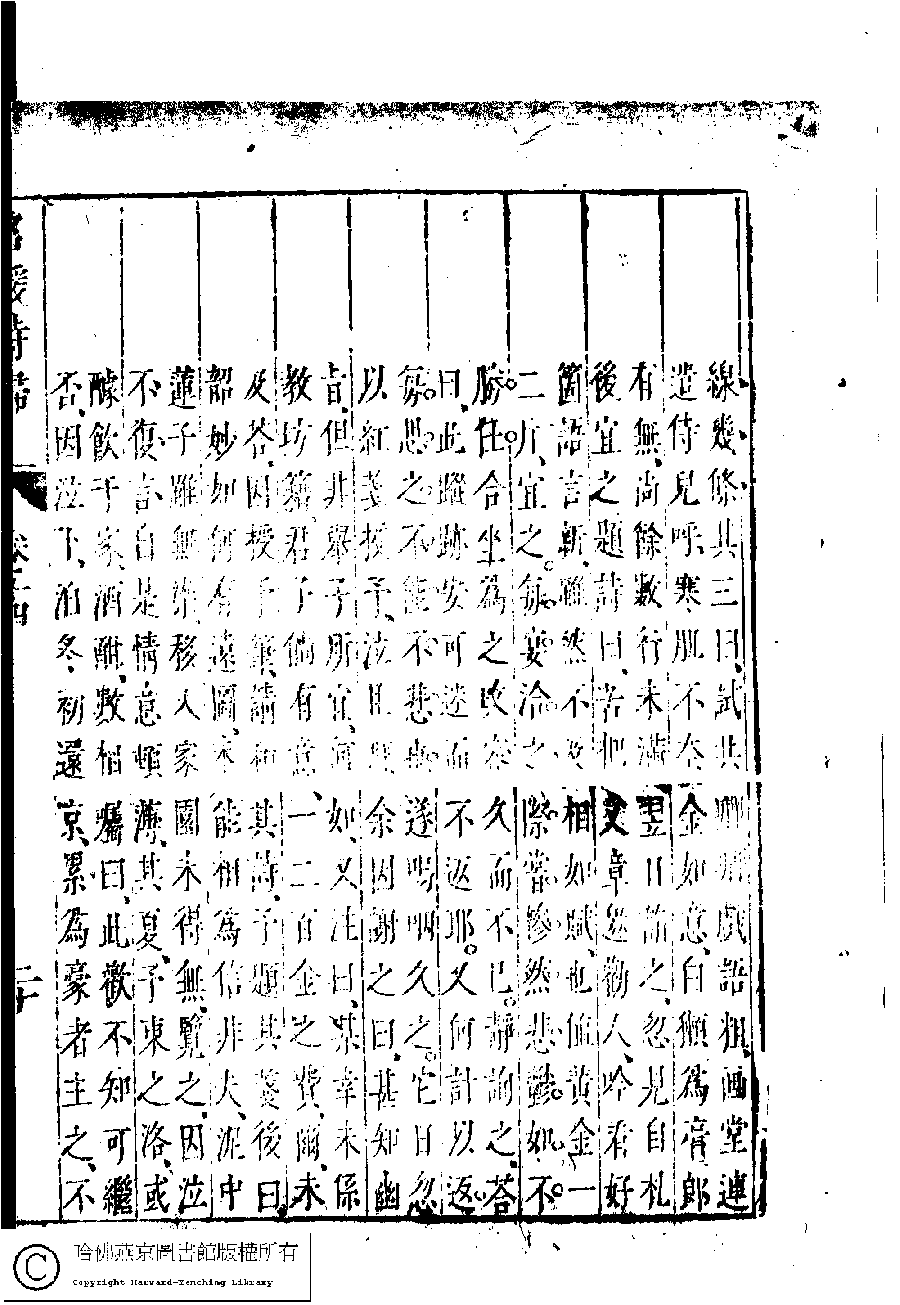 線幾條其三曰試共卿卿戲語粗畫堂連
遣侍兒呼寒肌不奈金如意白獺為膏郎
有無尚餘數行未滿翌日詣之忽見自札
後宜之題詩曰苦把文章邀勸人吟君好
箇語言新雖然不及相如賦也值黃金一
二斤宜之每宴洽之際常慘然悲鬱如不
勝任合坐為之改容久而不已靜詢之荅
曰此蹤跡安可迷而不返耶又何計以返
每思之不能不悲也遂嗚咽久之它日忽
以紅箋授予泣且拜余因謝之曰甚知幽
旨但非舉子所宜何如又泣曰某幸未係
教坊籍君子倘有意一二百金之費爾未
及荅因授予筆請和其詩予題其箋後曰
韶妙如何有遠圖未能相為信非夫泥中
蓮子雖無染移入家園未得無覽之因泣
不復言自是情意頓薄其夏予東之洛或
醵飲于家酒酣數相囑曰此歡不知可繼
否因泣下洎冬初還京果為豪者主之不
名媛詩歸 卷十四 二十
哈佛燕京圖書館版權所有
Copyright Harvard-Yenching Library